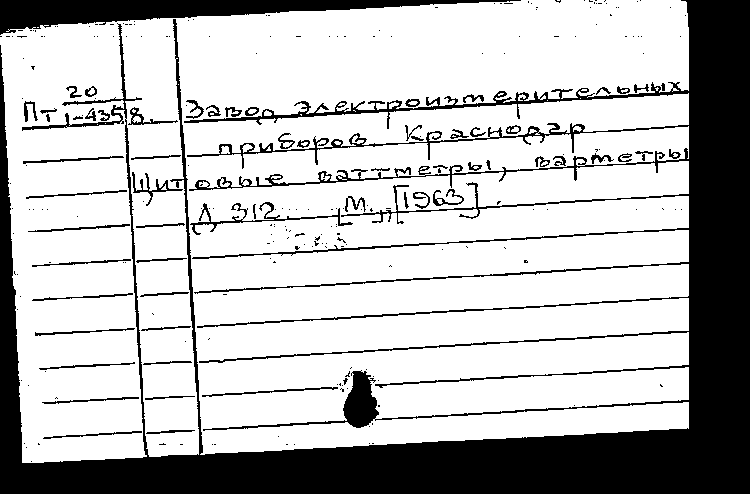 20
Пт 1-4358. Завод электроизмерительных
приборов. Краснодар
Щитовые ваттметры, варметры
Д 312. [М.], [1963].